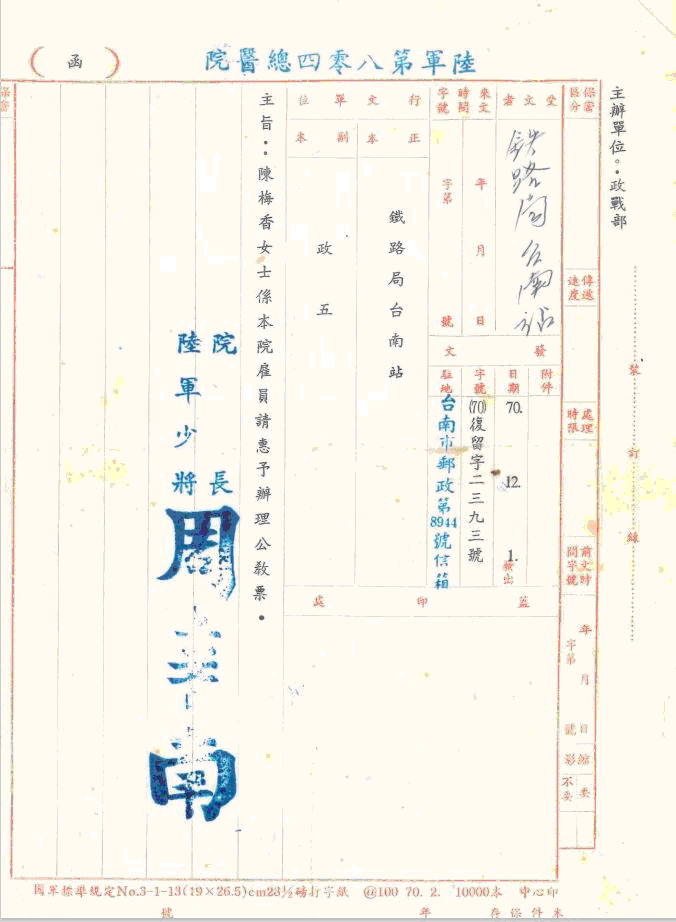 陸軍第八零四總醫院
（函）
主辦單位：政戰部
保密區分
傳遞速度
處理時張
前文時間字號
年 月 日
字第 號
縮影
要 不要
裝 訂 線
受文者
鐵路局台南站
來文時間字號
年 月 日
字第 號
發文
附件
日期
70. 12. 1. 發出
字號
(70)復留字二三九三號
駐地
台南市郵政第8944號信箱
行文單位
正本
鐵路局台南站
副本
政五
蓋印處
主旨：陳梅香女士係本院雇員請惠予辦理公教票。
院長
陸軍少將
周
南
國軍標準規定No.3-1-13(19×26.5)cm23½磅打字紙 @100 70. 2. 10000本 中心印
本件保存 年 號